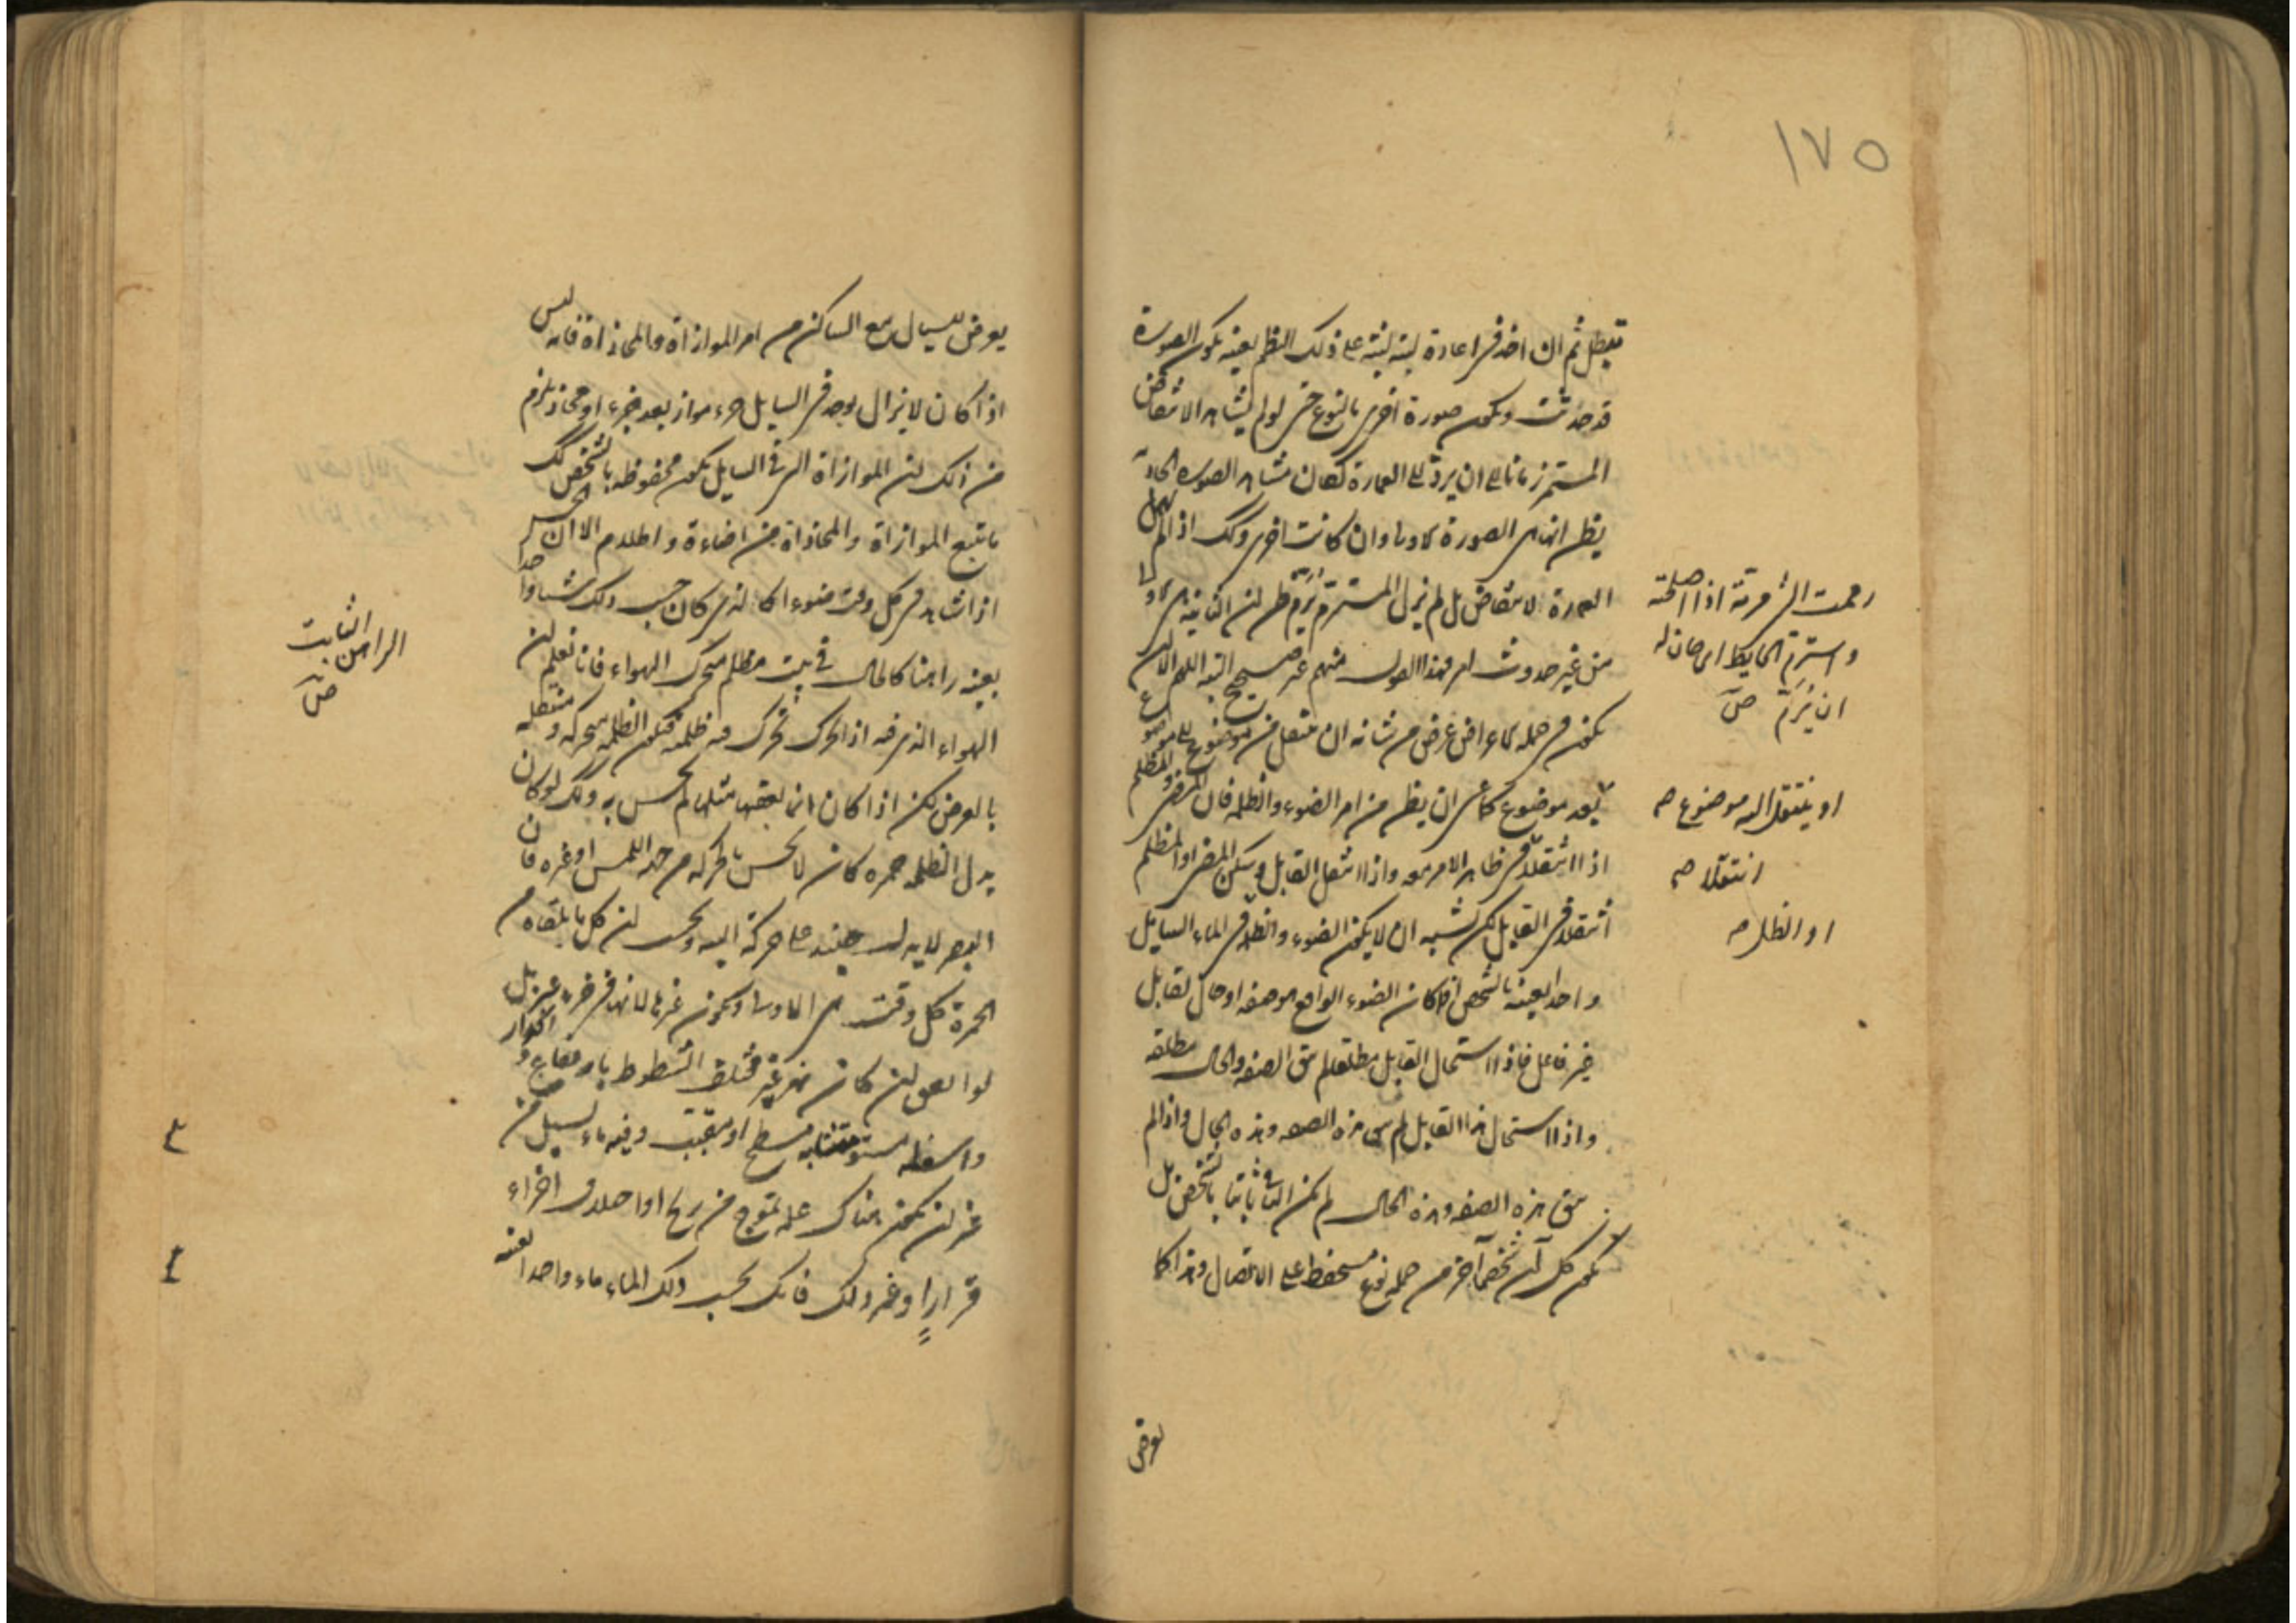 ١٧٥
فتبطل ثم ان اخذ في اعادة لبنة لبنة على ذلك النظم بعينه تكون الصورة
قد حدثت وتكون صورة اخرى بالنوع حتى لو لم يشاهد الانتقاض
المستمر زمانا الى ان يرد الى العمارة لكان مشاهد الصورة الحاد
يظن انها هي الصورة الاولى وان كانت اخرى وكذلك اذا لم تمهل
العمارة لانتقاض بل لم يزل المسترم يرم ظن ان الثانية هي الاولى
من غير حدوث امر فهذا القول منهم غير صحيح البتة اللهم الا ان
يكون في جملة الاعراض عرض من شانه ان ينتقل من موضوع الى موضوع
بعد موضوع كما عسى ان يظن من امر الضوء والظلمة فان المضئ والمظلم
اذا انتقلا في ظاهر الامر معه واذا انتقل القابل وسكن المضئ او المظلم
انتقلا في القابل لكن يشبه ان لا يكون الضوء والظل في الماء السايل
واحدا بعينه بالشخص اذ كان الضوء الواقع هو صفة او حال لقابل
غير فاعل فاذا استحال القابل مطلقا لم تبق الصفة والحال مطلقة
واذا استحال هذا القابل لم تبق هذه الصفة وهذه الحال واذا لم
تبق هذه الصفة وهذه الحال لم يكن الباقي ثابتا بالشخص بل
يكون كل آن شخصا آخر من جملة نوع مستحفظ على الاتصال وهذا كما
رممت الشئ مرمة اذا اصلحته
واسترم الحايط اى حان له
ان يُرَمّ صح
او ينتقل اليه موضوع صح
انتقلا صح
او الظل صح
يعرض
يعرض للسيال مع الساكن من امر الموازاة والمحاذاة فانه ليس
اذا كان لا يزال يوجد في السايل جزء مواز بعد جزء او محاذ يلزم
من ذلك ان الموازاة التي في السايل تكون محفوظة بالشخص كذلك
ما يتبع الموازاة والمحاذاة من اضاءة واظلام الا ان الحس
اذا شاهد في كل وقت ضوءا كالذي كان حسب ذلك شيئا واحدا
بعينه راهنا كالحال في بيت مظلم متحرك الهواء فانا نعلم ان
الهواء الذي فيه اذا تحرك تحرك فيه ظلمة فتكون الظلمة متحركة ومنتقلة
بالعرض لكن اذا كان انما يعقبها مثلها لم يحس به وكذلك لو كان
بدل الظلمة حمرة كان لا يحس بالحركة من جهة اللمس او غيره فان
البصر لا يدل حينئذ على حركة البتة ويحس ان كل ما يلقاه من
الحمرة كل وقت هي الاولى وتكون غيرها لانها في جزء غيره بل
لو اتفق ان كان نهر غير مختلف الشطوط بارتفاع وانحدار
واسفله مستو متشابه مسطح او مقبب وفيه ماء يسيل من
غير ان تكون هناك علة تموج من ريح او اختلاف اجزاء
قرار او غير ذلك فانك تحسب ذلك الماء ماء واحدا بعينه
الراهن الثابت
صح